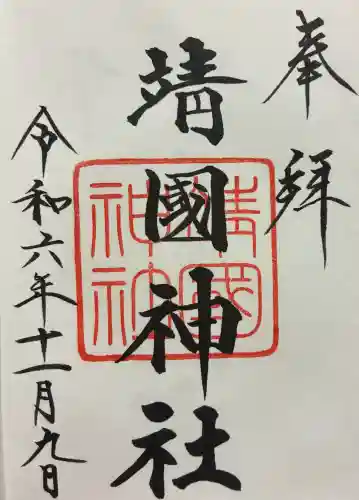 奉拜
靖國神社
靖國神社
令和六年十一月九日